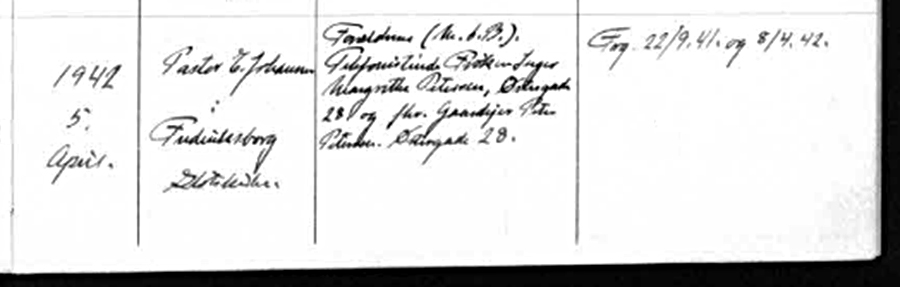 1942
5.
April.
Pastor E. Johansen
i
Frederiksborg
Slotskirke.
Forældrene (M. b. B.).
Telefonistinde Frøken Inger
Margrethe Petersen, Østergade
28 og fhv. Gaardejer Peter
Petersen. Østergade 28.
Fog. 22/9.41. og 8/4.42.